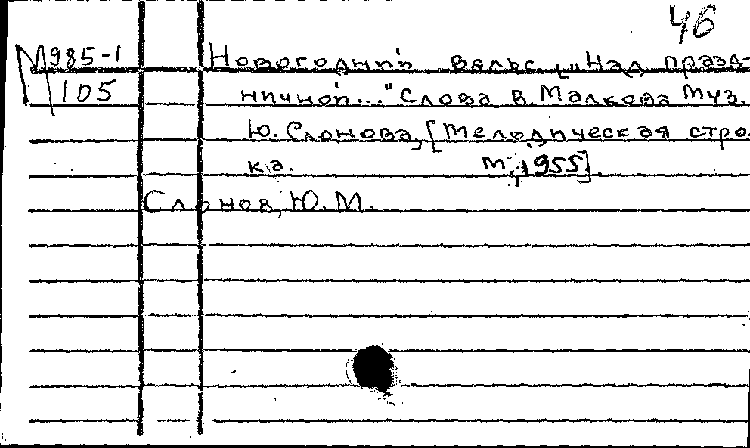 46
М985-1 Новогодний вальс. [„Над празд-
105 ничной..." Слова В. Малкова Муз.
Ю. Слонова, [Мелодическая стро-
ка. М., 1955].
Слонов, Ю. М.